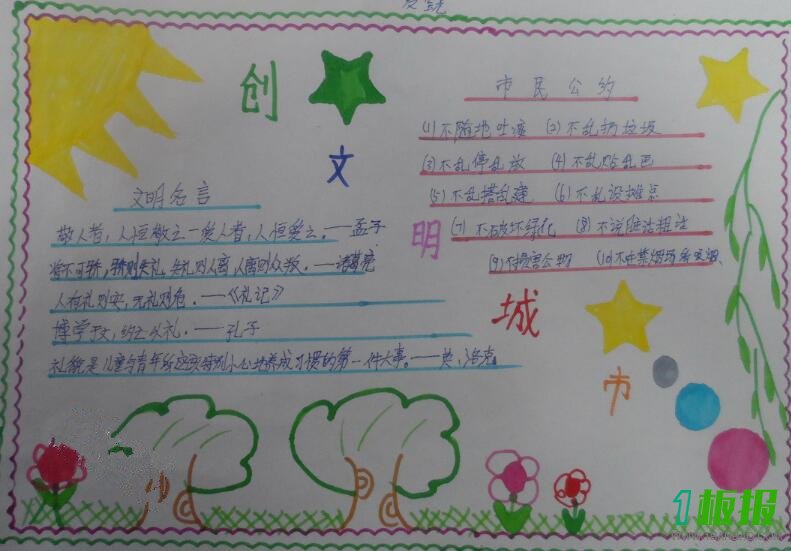 创
文
明
城
市
文明名言
敬人者,人恒敬之一爱人者,人恒爱之,——孟子
将不可骄,骄则失礼,失礼则人离,人离则众叛.——诸葛亮
人有礼则安,无礼则危.——《礼记》
博学于文,约之以礼.——孔子
礼貌是儿童与青年所应该特别小心地养成习惯的第一件大事。——英、洛克。
市民公约
(1)不随地吐痰 (2)不乱扔垃圾
(3)不乱停乱放 (4)不乱贴乱画
(5)不乱搭乱建 (6)不乱设摊点
(7)不破坏绿化 (8)不说脏话粗话
(9)不损害公物 (10)不在禁烟场所吸烟.
1板报